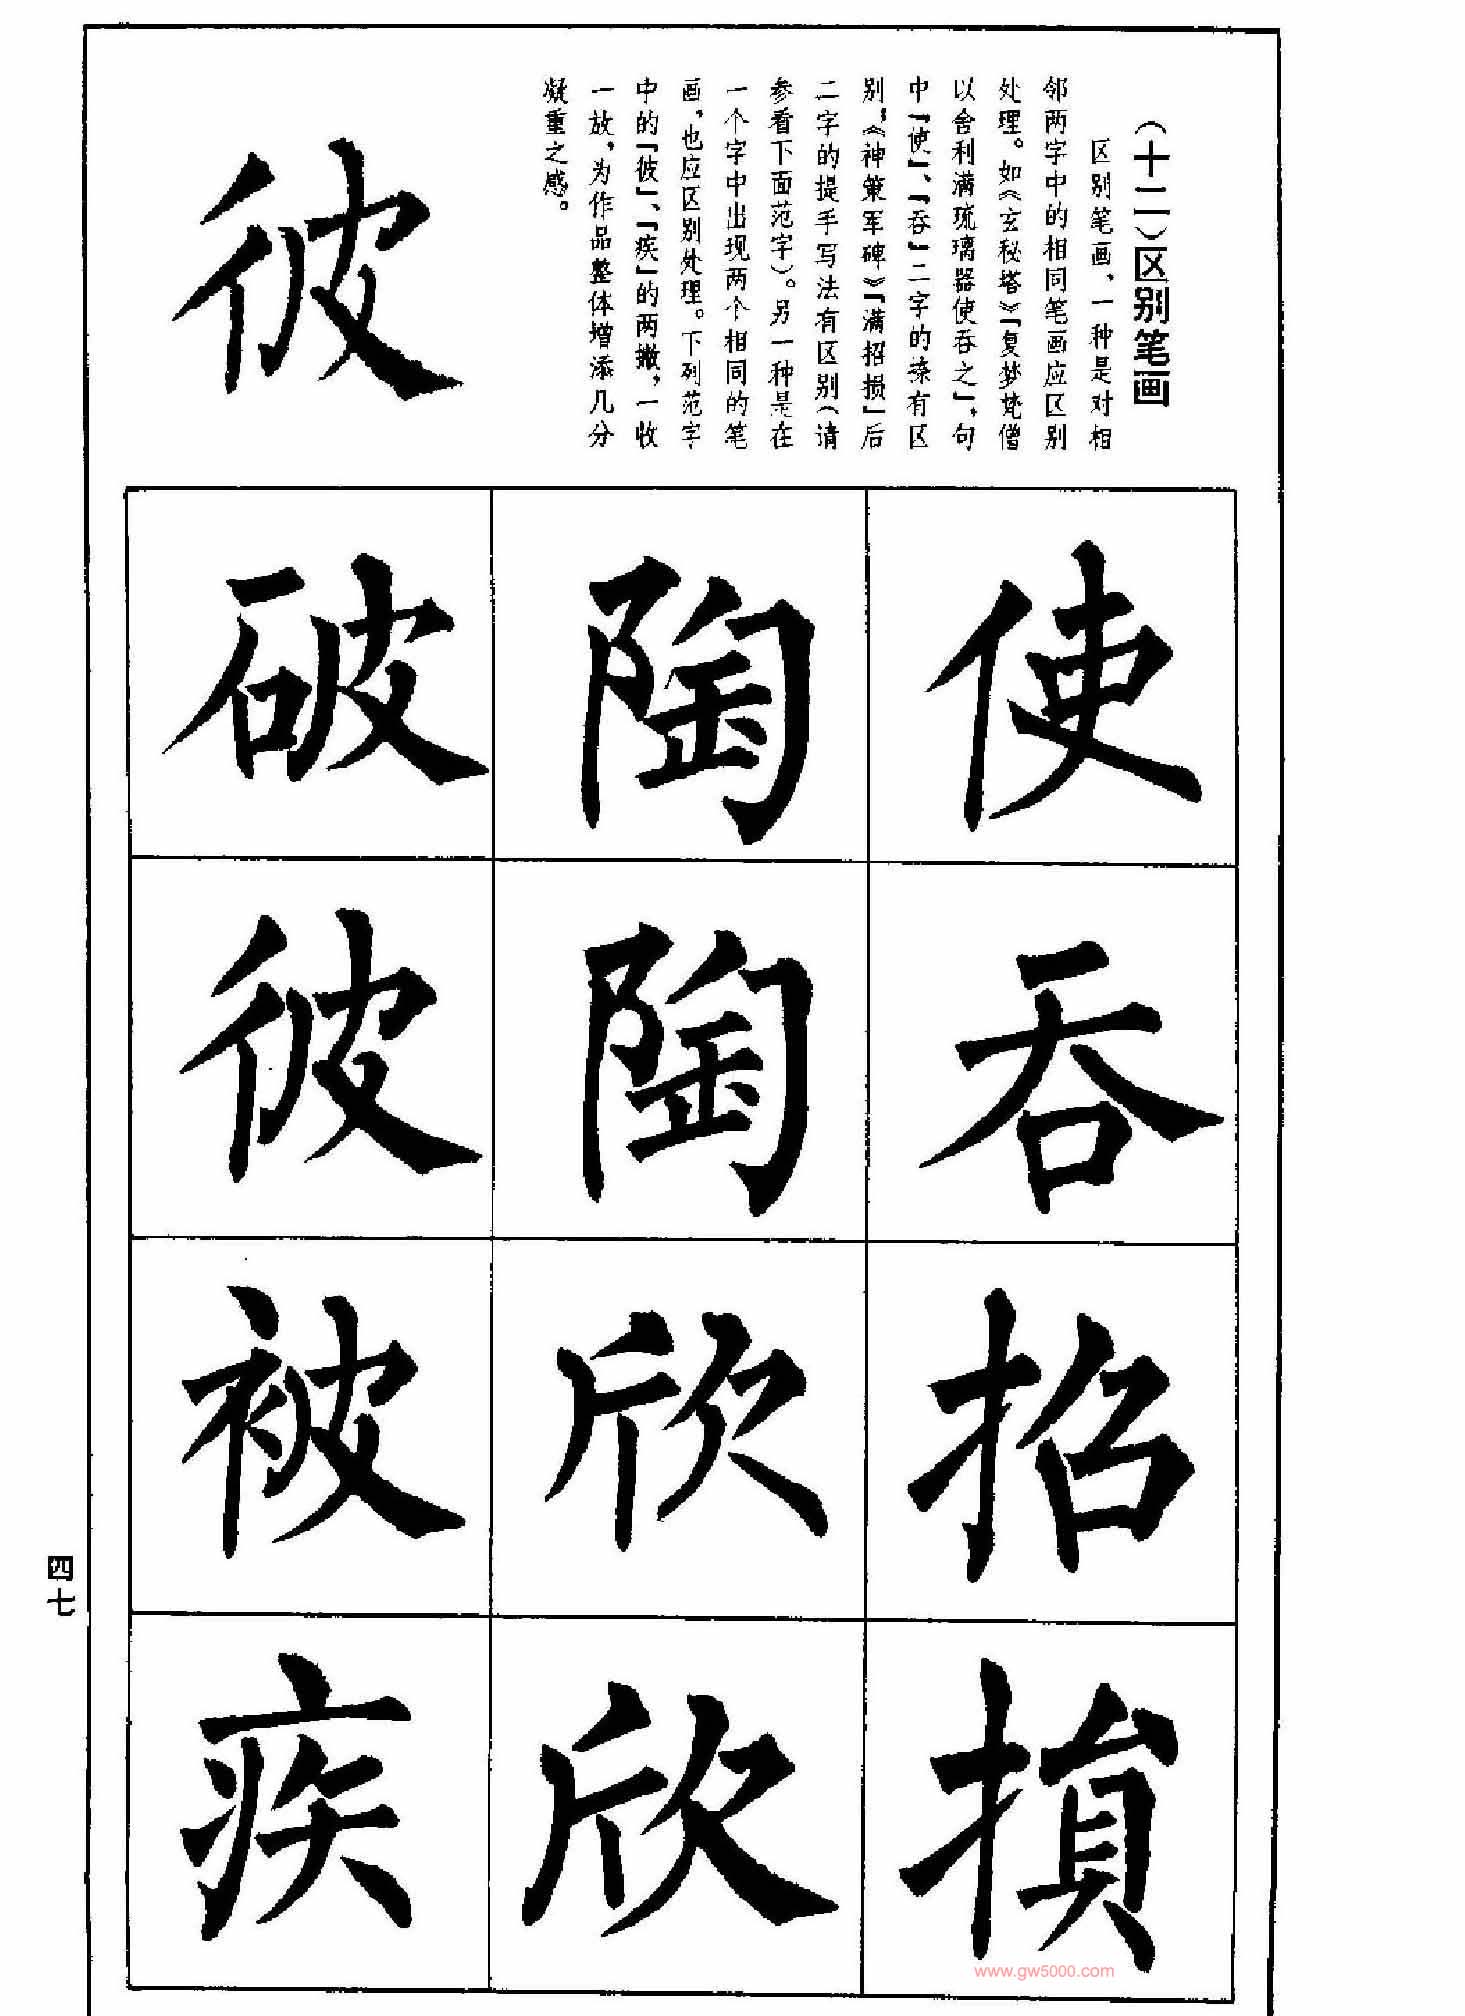 （十二）区别笔画
区别笔画，一种是对相
邻两字中的相同笔画应区别
处理。如《玄秘塔》「复梦梵僧
以舍利满琉璃器使吞之」，句
中「使」、「吞」二字的捺有区
别，《神策军碑》「满招损」后
二字的提手写法有区别（请
参看下面范字）。另一种是在
一个字中出现两个相同的笔
画，也应区别处理。下列范字
中的「彼」、「疾」的两撇，一收
一放，为作品整体增添几分
凝重之感。
彼
使
吞
招
損
陶
陶
欣
欣
破
彼
被
疾
四七
www.gw5000.com